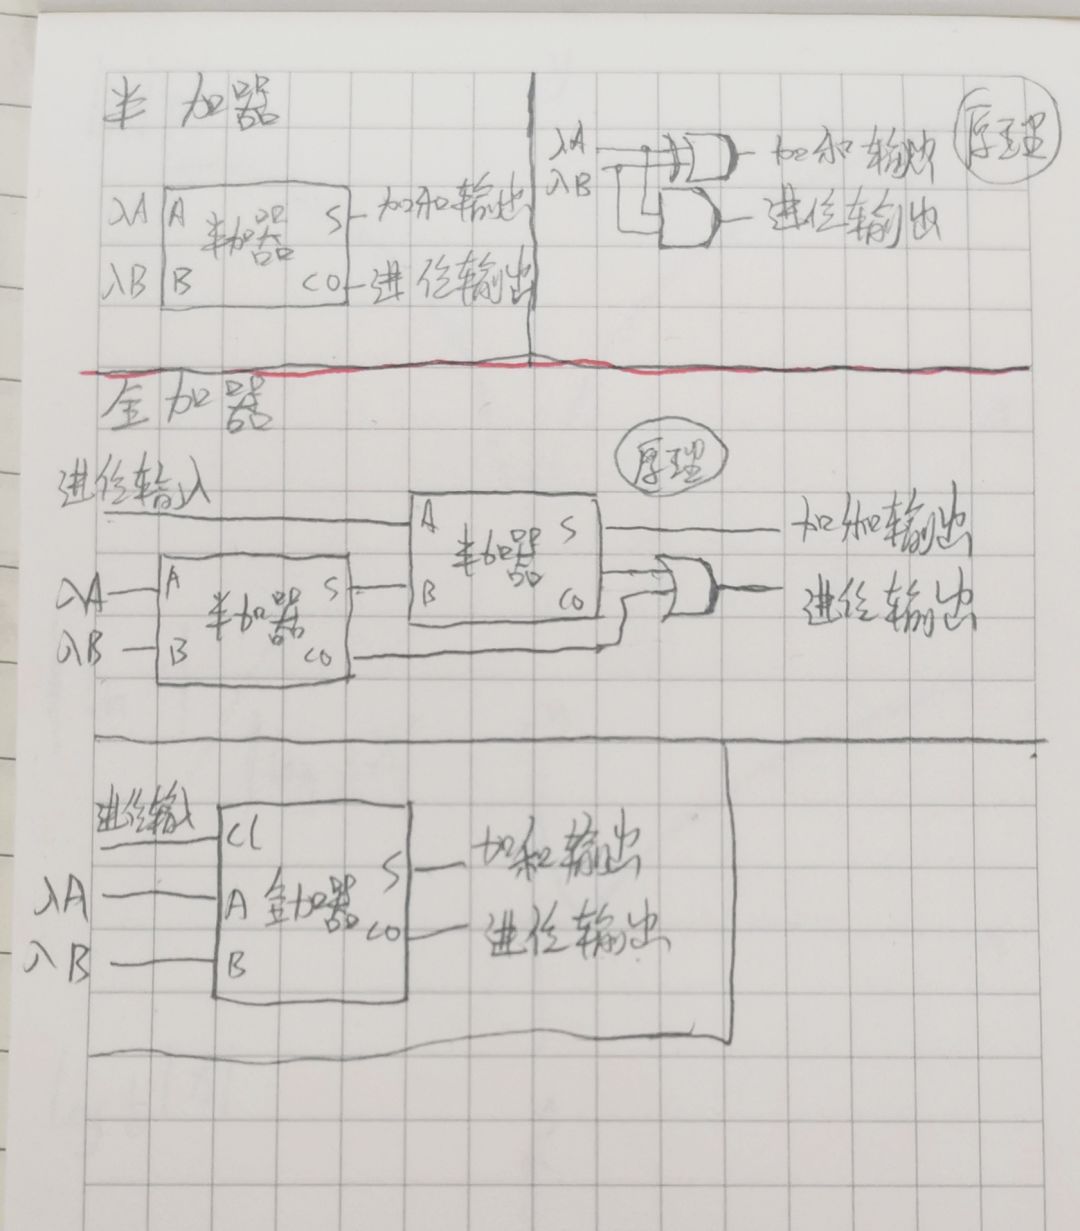 半加器
入A A 半加器 S 加和输出
入B B CO 进位输出
原理
入A 加和输出
入B 进位输出
全加器
原理
进位输入
A 半加器 S 加和输出
B CO 进位输出
入A A 半加器 S
入B B CO
进位输入 CI
入A A 全加器 S 加和输出
入B B CO 进位输出